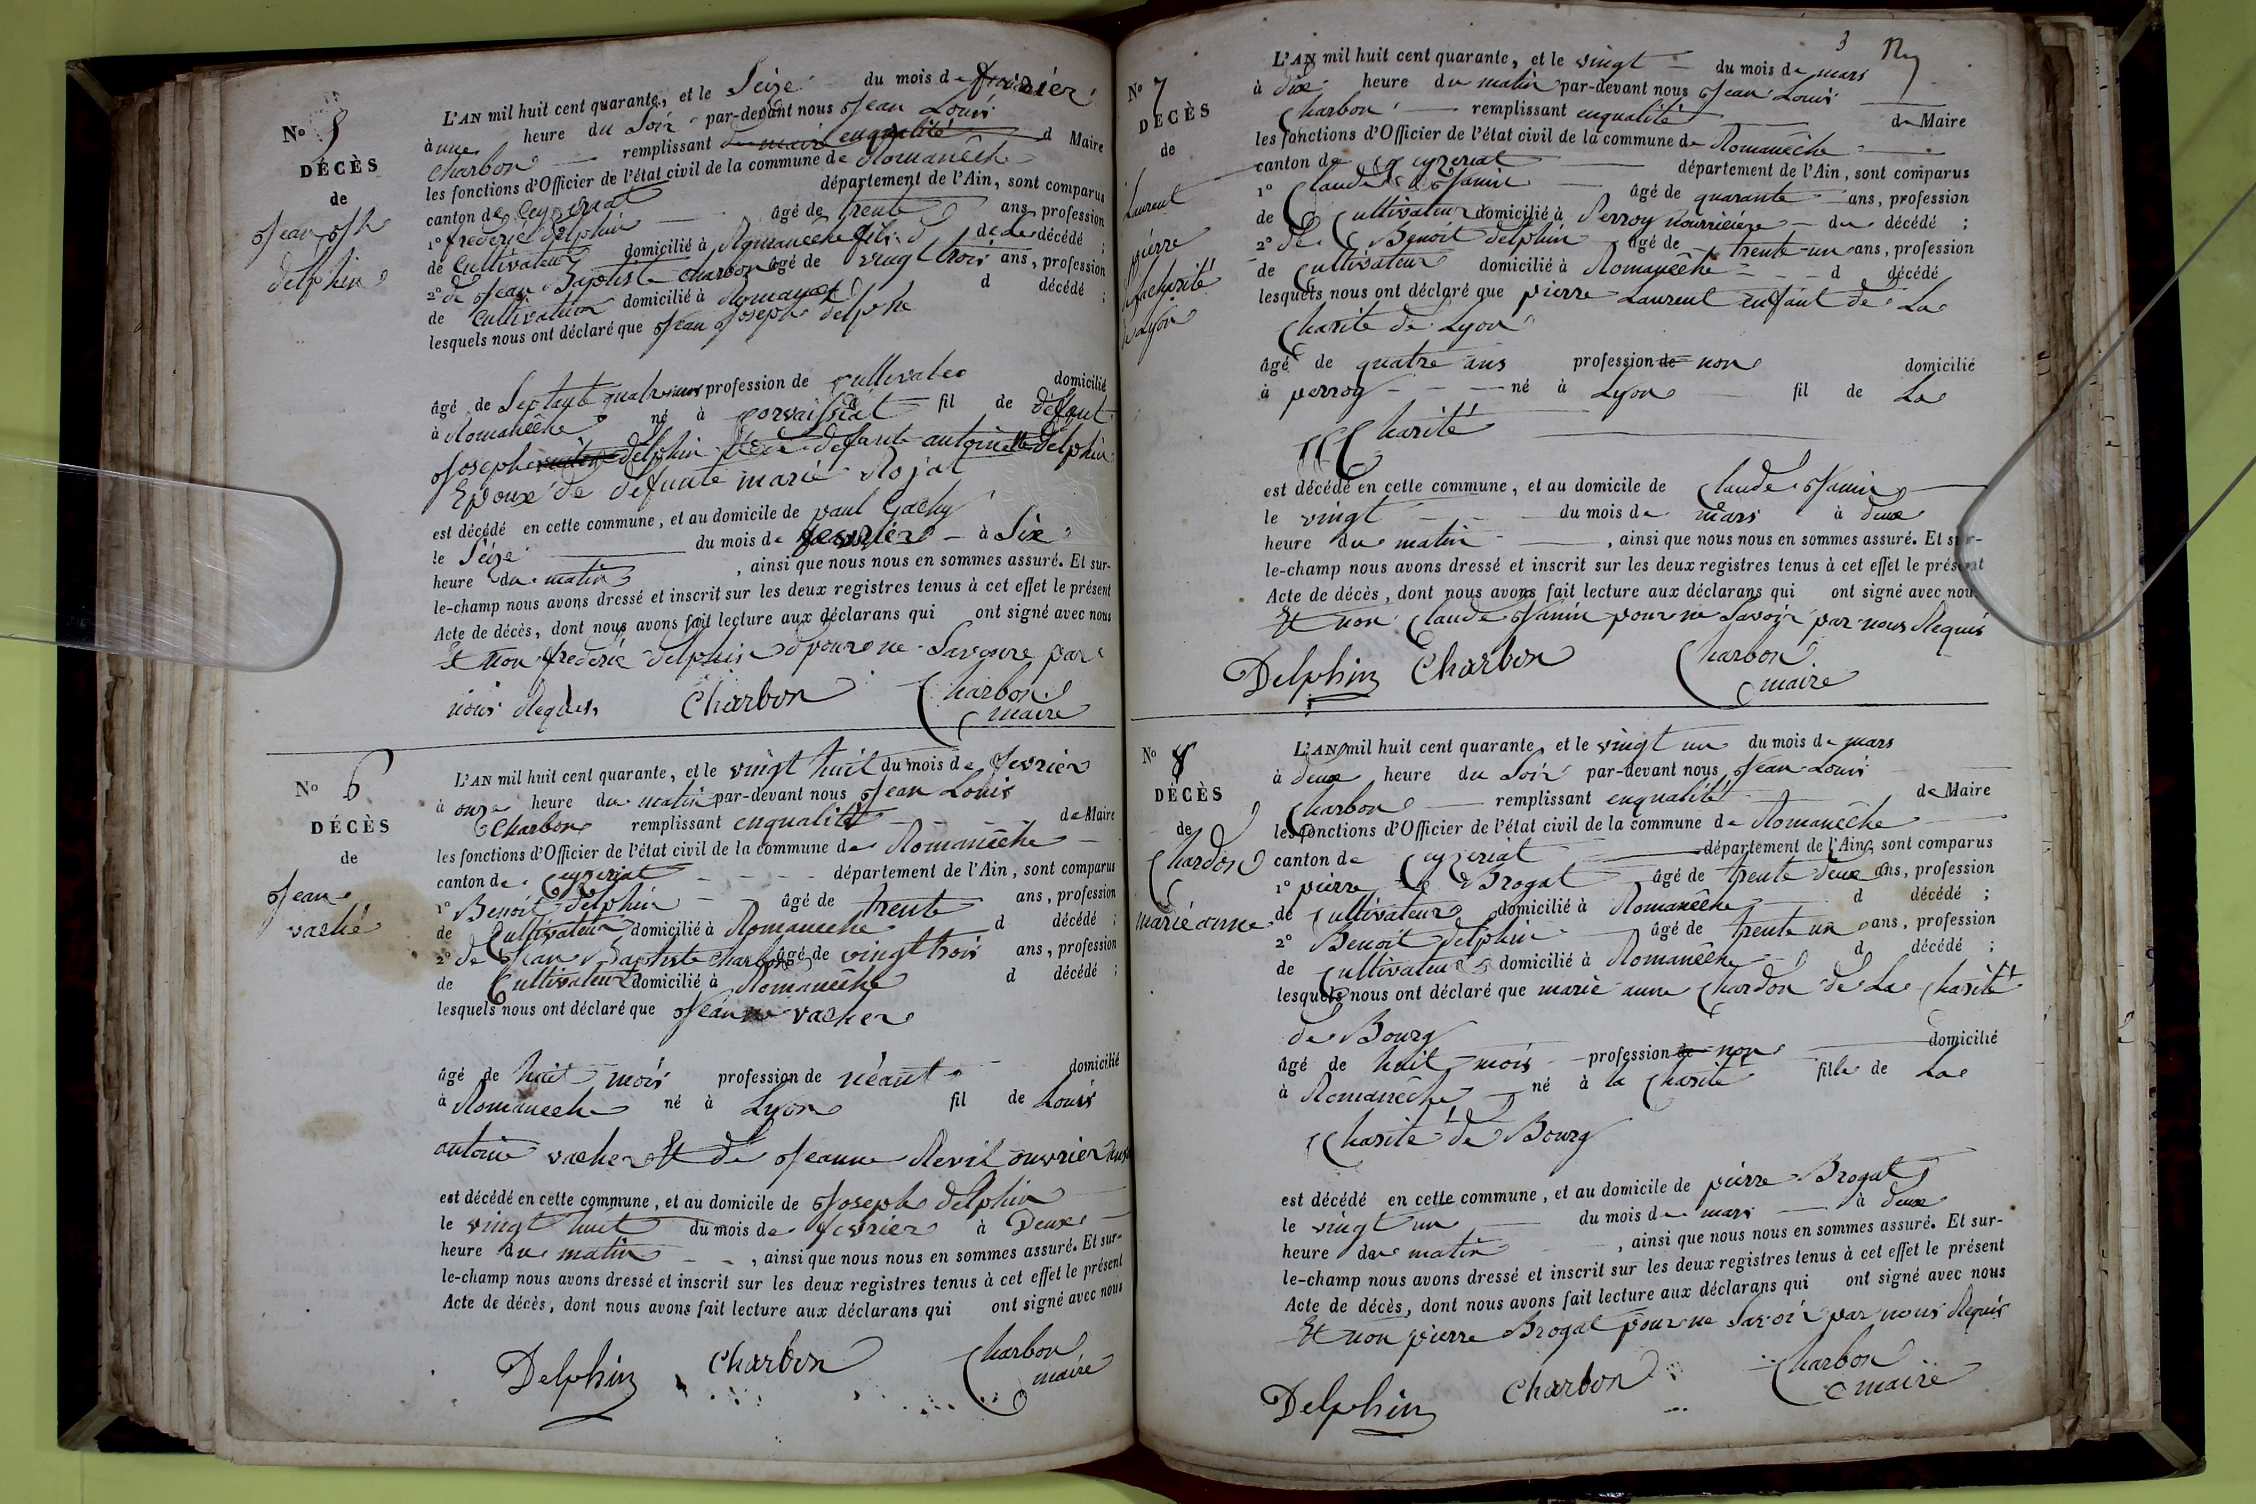 N° 5
DÉCÈS
de
Jean Jph
delphin
L'AN mil huit cent quarante, et le Seize du mois de fevrier
à une heure du Soir par-devant nous Jean Louis
Charbon remplissant enqualité d Maire
les fonctions d'Officier de l'état civil de la commune de Romanêche
canton de Ceyzeriat département de l'Ain, sont comparus
1° frederic delphin âgé de trente ans, profession
de Cultivateur domicilié à Romaneche fils d de Le décédé ;
2° de Jean Baptiste Charbon âgé de vingt trois ans, profession
de Cultivateur domicilié à d décédé ;
lesquels nous ont déclaré que Jean Joseph
âgé de Septante quatre ans profession de domicilié
à Romanêche né à fil de défunt
Joseph delphin défunte antoinette delphin
Epoux de défunte marie Rojat
est décédé en cette commune, et au domicile de paul Gachy
le Seize du mois de fevrier à Six
heure du matin , ainsi que nous nous en sommes assuré. Et sur-
le-champ nous avons dressé et inscrit sur les deux registres tenus à cet effet le présent
Acte de décès, dont nous avons fait lecture aux déclarans qui ont signé avec nous
Et non frederic delphin pour ne par
nous Requis Charbon Charbon
maire
N° 6
DÉCÈS
de
Jean
vaché
L'AN mil huit cent quarante, et le vingt huit du mois de fevrier
à onze heure du matin par-devant nous Jean Louis
Charbon remplissant enqualité de Maire
les fonctions d'Officier de l'état civil de la commune de Romanêche
canton de Ceyzeriat département de l'Ain, sont comparus
1° Benoit delphin âgé de trente ans, profession
de Cultivateur domicilié à Romaneche d décédé ;
2° de Jean Baptiste Charbon âgé de vingt trois ans, profession
de Cultivateur domicilié à Romanêche d décédé ;
lesquels nous ont déclaré que Jean vacher
âgé de huit mois profession de néant domicilié
à Romaneche né à Lyon fil de Louis
antoine vacher Et de Jeanne Revil ouvrier
est décédé en cette commune, et au domicile de Joseph delphin
le vingt huit du mois de fevrier à Deux
heure du matin , ainsi que nous nous en sommes assuré. Et sur-
le-champ nous avons dressé et inscrit sur les deux registres tenus à cet effet le présent
Acte de décès, dont nous avons fait lecture aux déclarans qui ont signé avec nous
Delphin Charbon Charbon
maire
3
N° 7
DÉCÈS
de
Laurent
pierre
de la charité
de Lyon
L'AN mil huit cent quarante, et le vingt du mois de mars
à dix heure du matin par-devant nous Jean Louis
Charbon remplissant enqualité de Maire
les fonctions d'Officier de l'état civil de la commune de Romanêche
canton de Ceyzeriat département de l'Ain, sont comparus
1° Claude Janin âgé de quarante ans, profession
de Cultivateur domicilié à Perroy nourricière du décédé ;
2° de Benoit delphin âgé de trente un ans, profession
de Cultivateur domicilié à Romanêche d décédé
lesquels nous ont déclaré que pierre Laurent enfant de La
Charité de Lyon
âgé de quatre ans profession de non domicilié
à perroy né à Lyon fil de La
Charité
est décédé en cette commune, et au domicile de Claude Janin
le vingt du mois de mars à deux
heure du matin , ainsi que nous nous en sommes assuré. Et sur-
le-champ nous avons dressé et inscrit sur les deux registres tenus à cet effet le présent
Acte de décès, dont nous avons fait lecture aux déclarans qui ont signé avec nous
Et non Claude Janin pour ne Savoir par nous Requis
Delphin Charbon Charbon
maire
N° 8
DÉCÈS
de
Chardon
marie anne
L'AN mil huit cent quarante, et le vingt un du mois de mars
à deux heure du Soir par-devant nous Jean Louis
Charbon remplissant enqualité de Maire
les fonctions d'Officier de l'état civil de la commune de Romanêche
canton de Ceyzeriat département de l'Ain, sont comparus
1° pierre Brogat âgé de trente deux ans, profession
de Cultivateur domicilié à Romanêche d décédé ;
2° Benoit delphin âgé de trente un ans, profession
de Cultivateur domicilié à Romanêche d décédé ;
lesquels nous ont déclaré que marie anne Chardon de La Charité
de Bourg
âgé de huit mois profession de non domicilié
à Romanêche né à la Charité fille de La
Charité de Bourg
est décédé en cette commune, et au domicile de pierre Brogat
le vingt un du mois de mars à deux
heure du matin , ainsi que nous nous en sommes assuré. Et sur-
le-champ nous avons dressé et inscrit sur les deux registres tenus à cet effet le présent
Acte de décès, dont nous avons fait lecture aux déclarans qui ont signé avec nous
Et non pierre Brogat pour ne Savoir par nous Requis
Delphin Charbon Charbon
maire